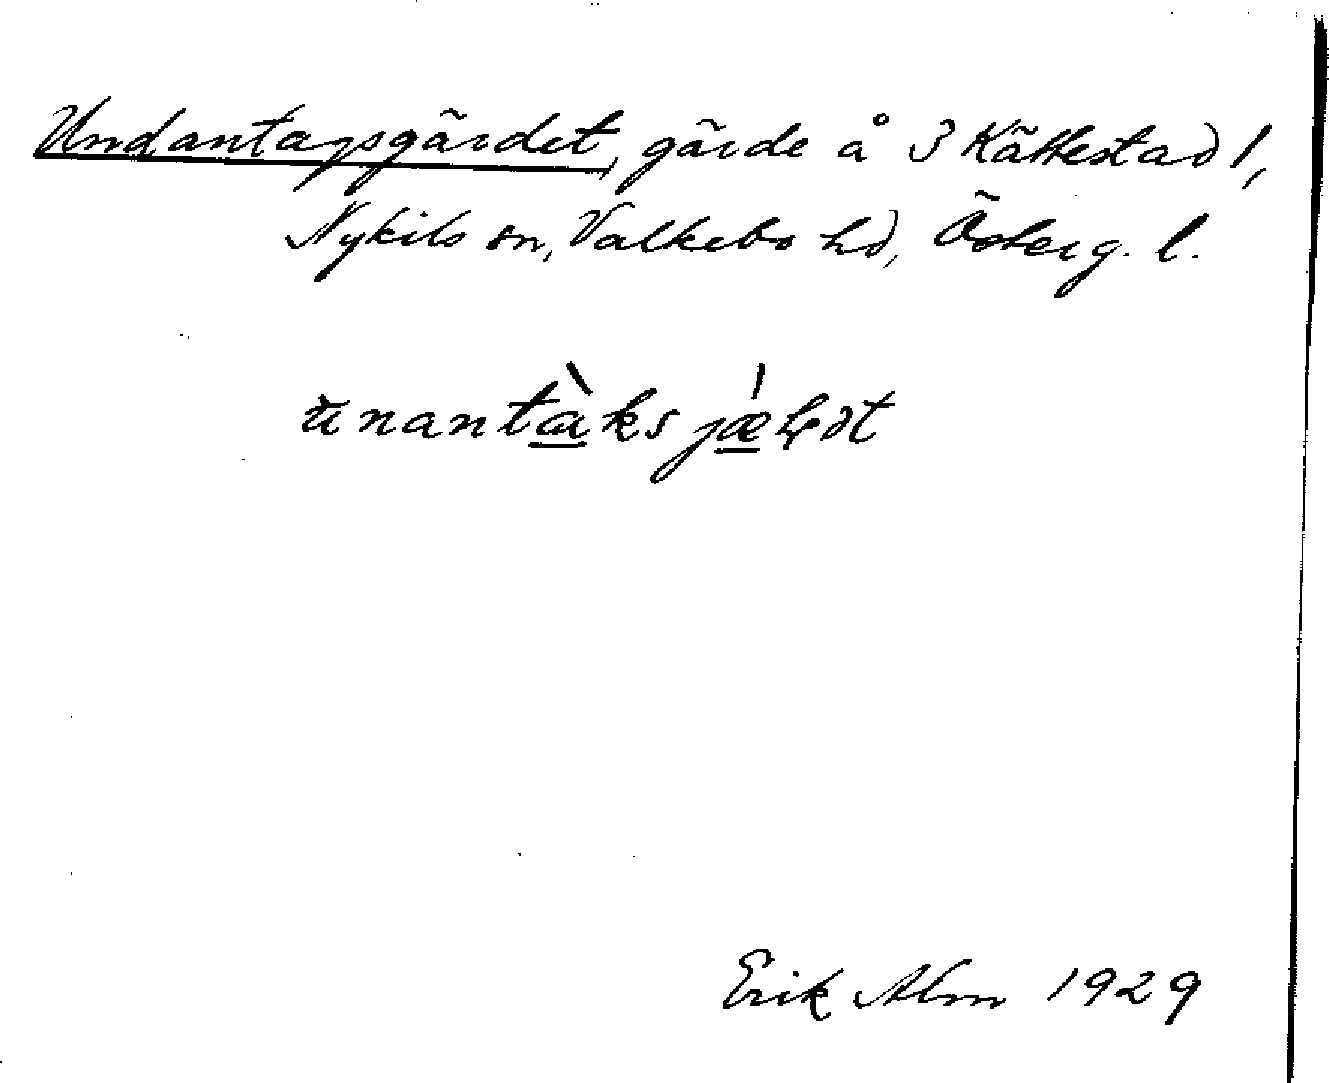 Undantagsgärdet, gärde å 3 Kättestad 1,
Nykils sn, Valkebo hd, Österg. l.
Erik Alm 1929